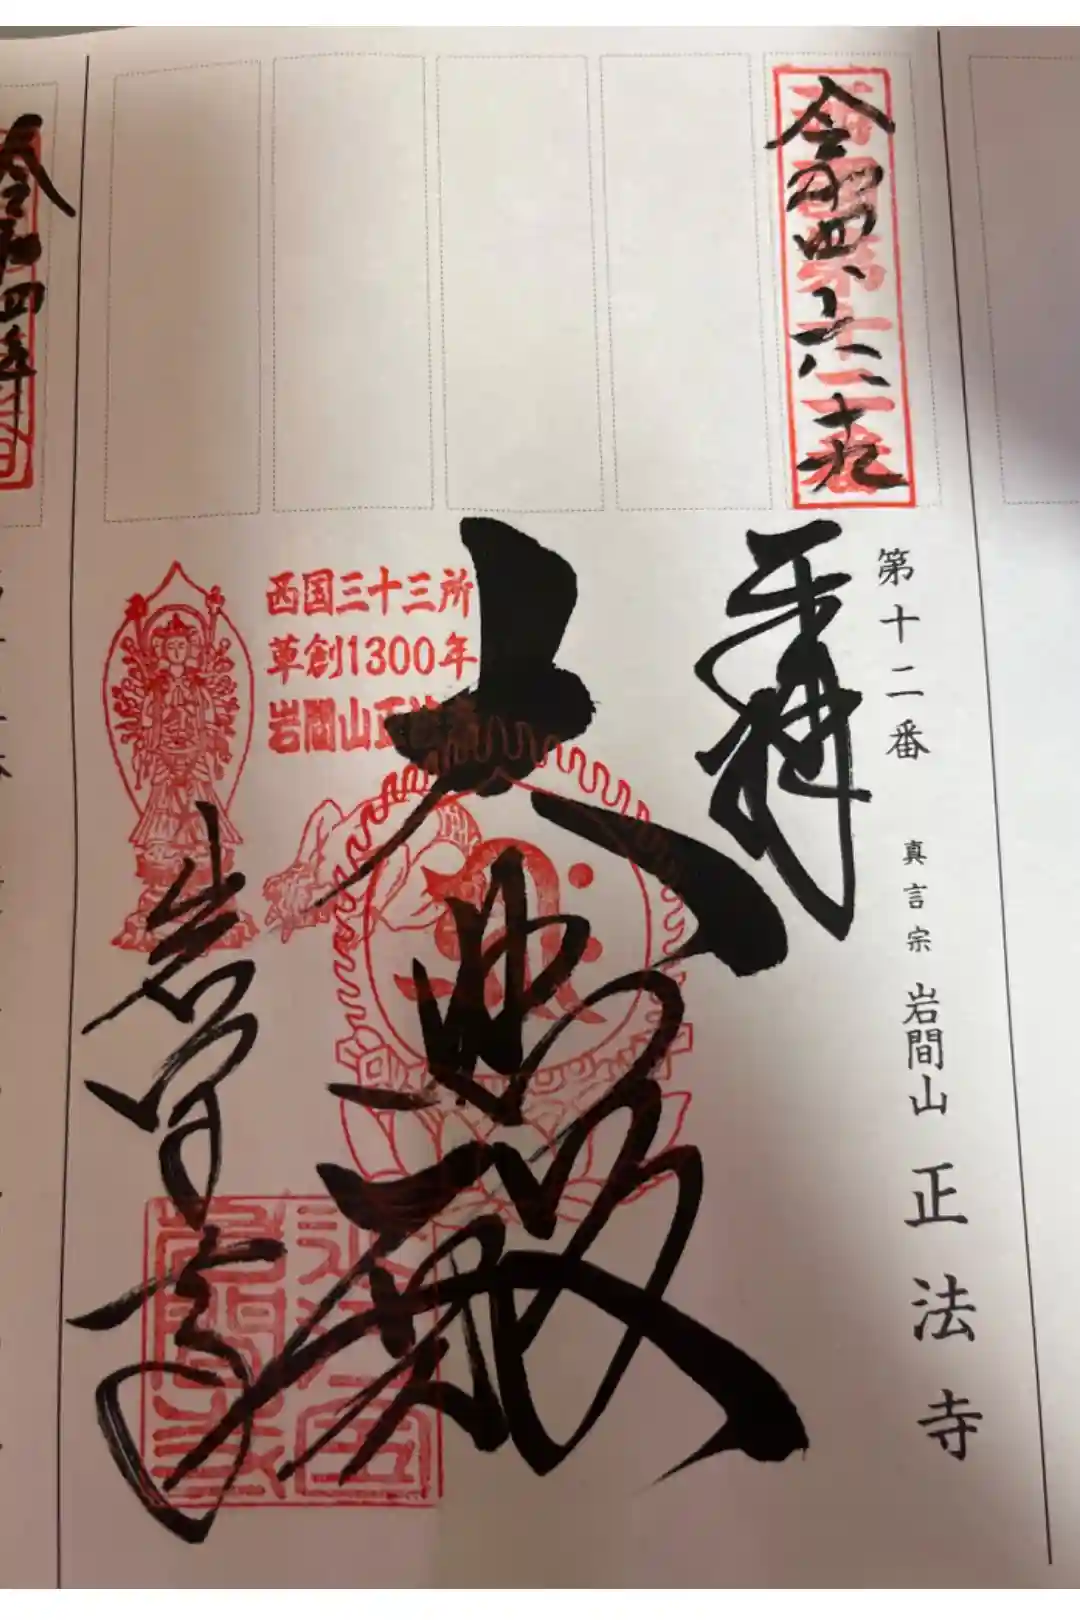 令和四、六、十九
西国第十二番
第十二番 真言宗 岩間山 正法寺
奉拝
大悲殿
岩间寺
西国三十三所
草創1300年
岩間山正法寺
令和四年
日